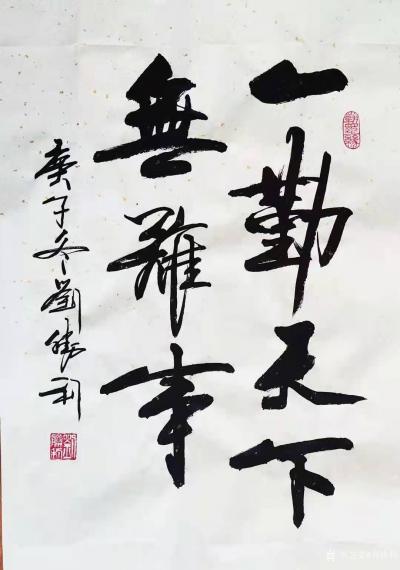 一勤天下
無難事
庚子冬劉勝利